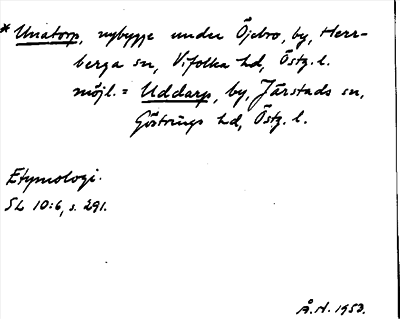 * Unatorp, nybygge under Öjebro, by, Herr-
berga sn, Vifolka hd, Östg. l.
möjl. = Uddarp, by, Järstads sn,
Göstrings hd, Östg. l.
Etymologi.
SL 10:6, s. 291.
Å.H. 1953.